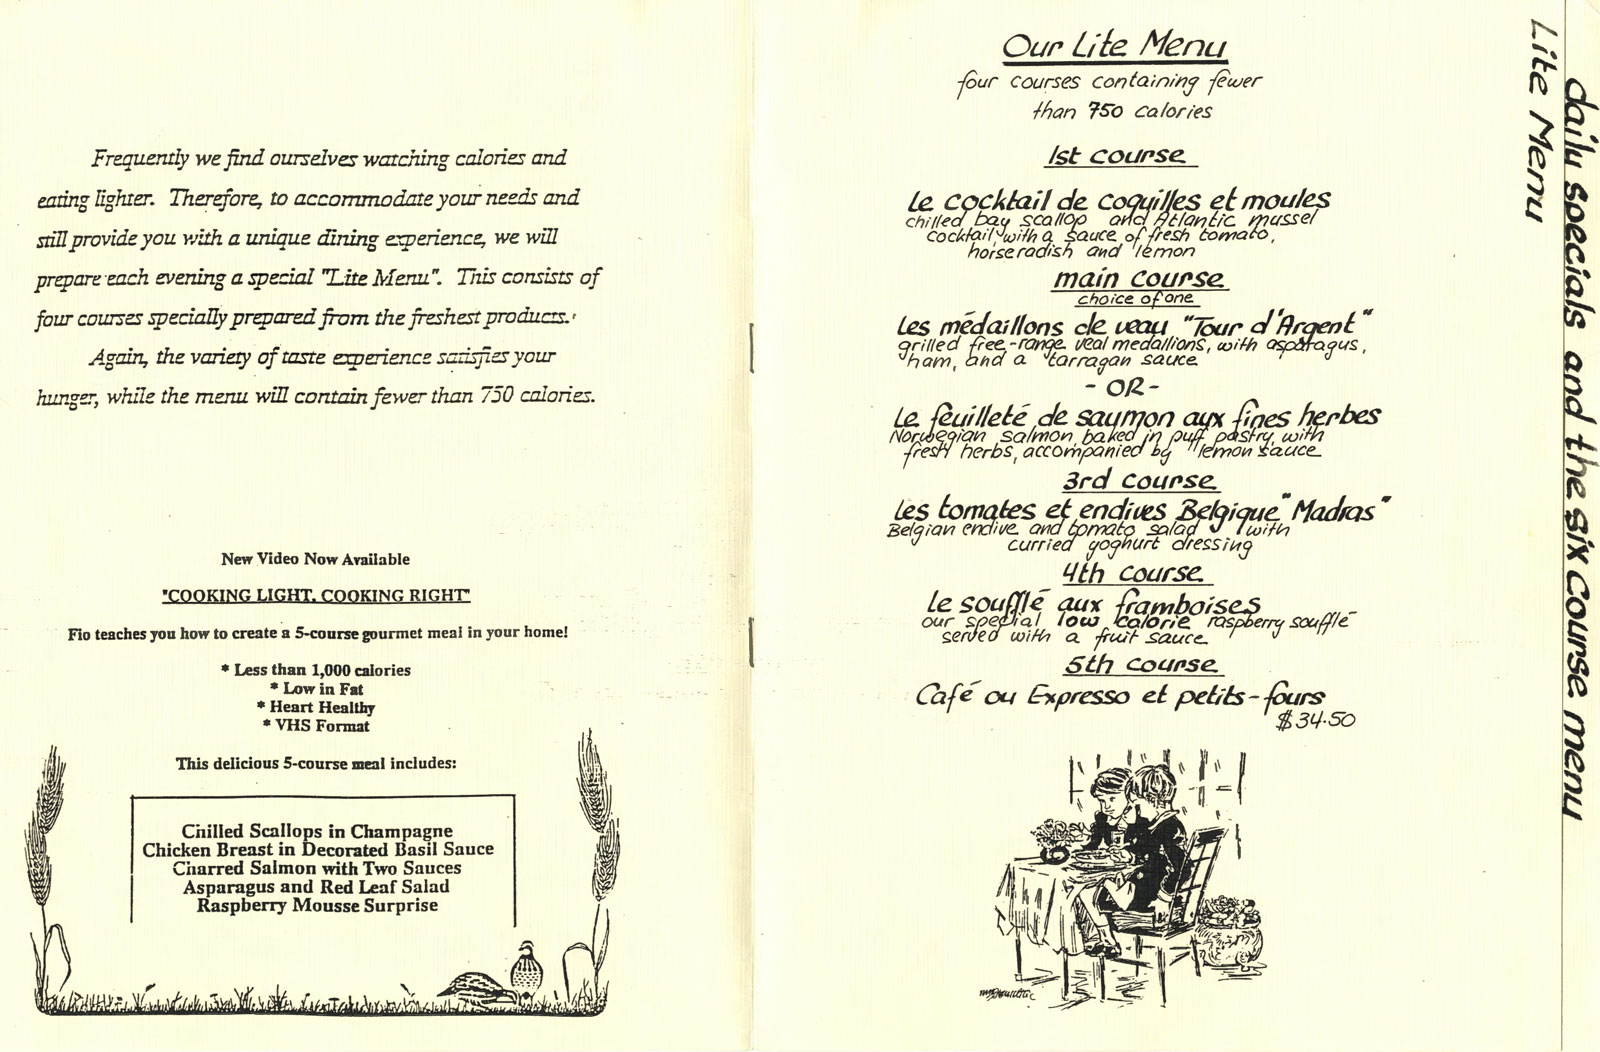 Frequently we find ourselves watching calories and
eating lighter. Therefore, to accommodate your needs and
still provide you with a unique dining experience, we will
prepare each evening a special "Lite Menu". This consists of
four courses specially prepared from the freshest products.
Again, the variety of taste experience satisfies your
hunger, while the menu will contain fewer than 750 calories.
New Video Now Available
"COOKING LIGHT, COOKING RIGHT"
Fio teaches you how to create a 5-course gourmet meal in your home!
* Less than 1,000 calories
* Low in Fat
* Heart Healthy
* VHS Format
This delicious 5-course meal includes:
Chilled Scallops in Champagne
Chicken Breast in Decorated Basil Sauce
Charred Salmon with Two Sauces
Asparagus and Red Leaf Salad
Raspberry Mousse Surprise
Our Lite Menu
four courses containing fewer
than 750 calories
1st course
Le cocktail de coquilles et moules
chilled bay scallop and Atlantic mussel
cocktail with a sauce of fresh tomato,
horseradish and lemon
main course
choice of one
Les médaillons de veau "Tour d'Argent"
grilled free-range veal medallions, with asparagus,
ham, and a tarragan sauce
- OR -
Le feuilleté de saumon aux fines herbes
Norwegian salmon baked in puff pastry, with
fresh herbs, accompanied by lemon sauce
3rd course
Les tomates et endives Belgique "Madras"
Belgian endive and tomato salad with
curried yoghurt dressing
4th course
Le soufflé aux framboises
our special low calorie raspberry soufflé
served with a fruit sauce
5th course
Café ou Expresso et petits-fours
$34.50
Lite Menu
daily specials and the six course menu